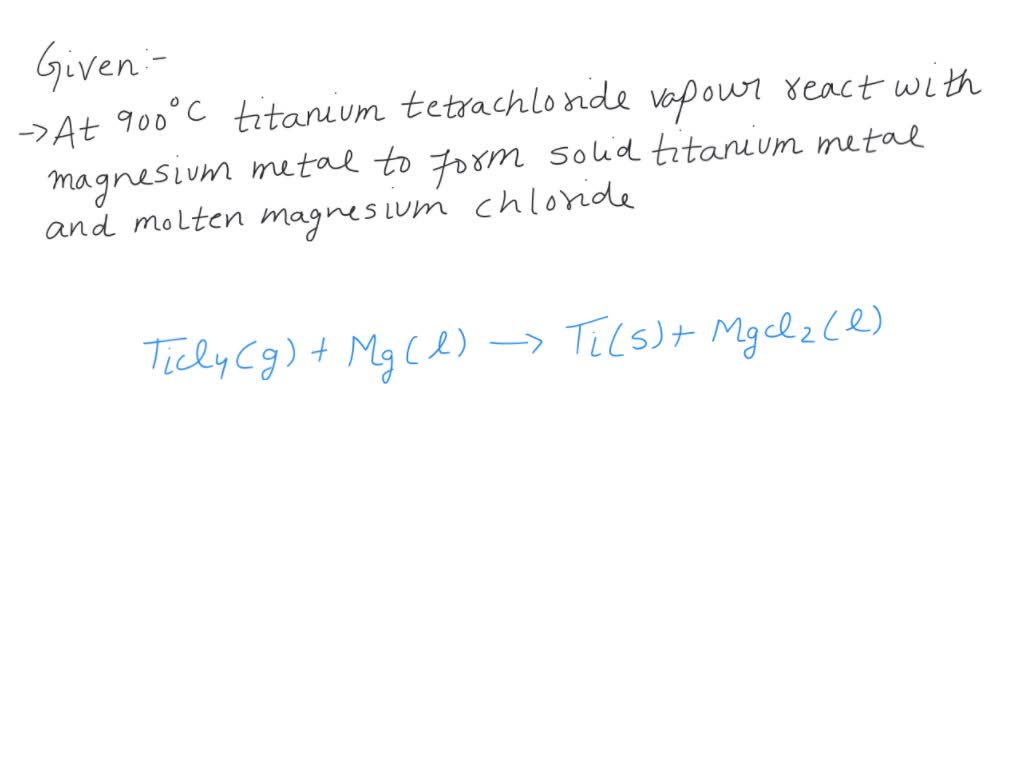 Given:-
→At 900°C titanium tetrachloride vapour react with
magnesium metal to form solid titanium metal
and molten magnesium chloride
TiCl4(g) + Mg(l) → Ti(s) + MgCl2(l)